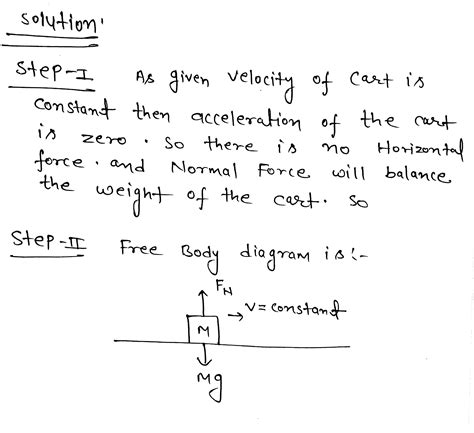 Solution'
Step-I As given velocity of cart is
constant then acceleration of the cart
is zero. So there is no Horizontal
force. and Normal Force will balance
the weight of the cart. So
Step-II Free Body diagram is :-
FN
→ v = constant
M
Mg